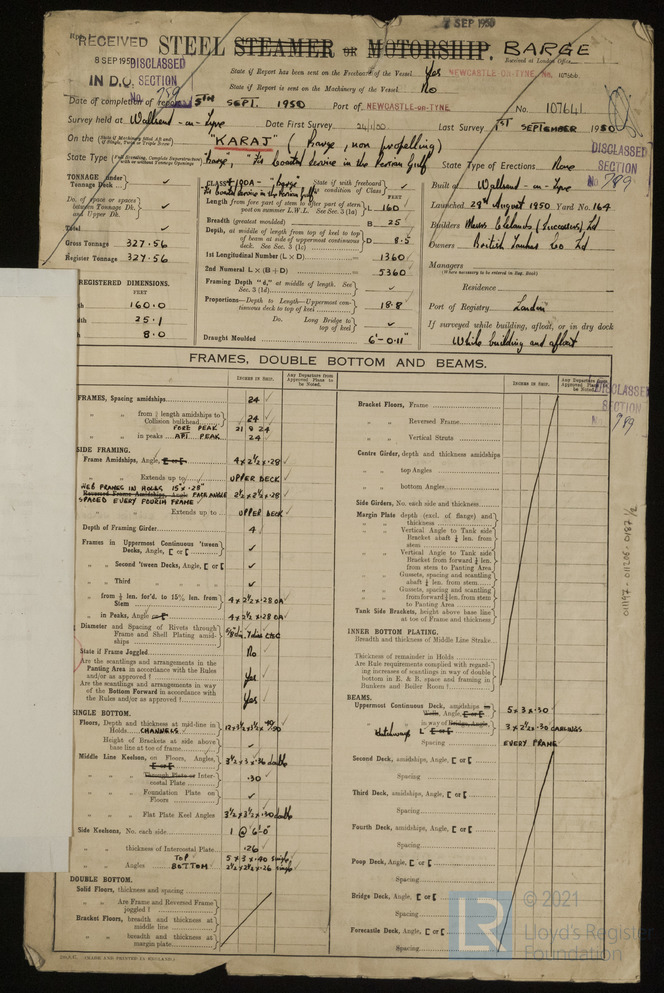 7 SEP 1950
RECEIVED
8 SEP 1950
IN D.O.
DISCLASSED
SECTION
No 789
STEEL STEAMER OR MOTORSHIP. BARGE
Received at London Office
State if Report has been sent on the Freeboard of the Vessel Yes NEWCASTLE-ON-TYNE, No. 107666
State if Report is sent on the Machinery of the Vessel No
Date of completion of report 5TH SEPT. 1950 Port of NEWCASTLE-ON-TYNE No. 107641
Survey held at Wallsend-on-Tyne Date First Survey 24/1/50 Last Survey 1ST SEPTEMBER 1950
On the "KARAJ" (Barge, non propelling)
State Type "barge", "for coastal service in the Persian Gulf" State Type of Erections None
DISCLASSED
SECTION
No 789
TONNAGE under Tonnage Deck
Do. of space or spaces between Tonnage Dk. and Upper Dk.
Total
Gross Tonnage 327.56
Register Tonnage 327.56
REGISTERED DIMENSIONS.
FEET
160.0
25.1
8.0
CLASS 100A- "barge" State if with freeboard as condition of Class
for coastal service in the Persian Gulf
FEET
Length from fore part of stem to after part of stern post on summer L.W.L. See Sec. 3 (1a) L 160
Breadth (greatest moulded) B 25
Depth, at middle of length from top of keel to top of beam at side of uppermost continuous deck. See Sec. 3 (1c) D 8.5
1st Longitudinal Number (L × D) 1360
2nd Numeral L × (B+D) 5360
Framing Depth "d," at middle of length. See Sec. 3 (1d)
Proportions—Depth to Length—Uppermost continuous deck to top of keel 18.8
Do. Long Bridge to top of keel
Draught Moulded 6'-0.11"
Built at Wallsend-on-Tyne
Launched 29th August 1950 Yard No. 164
Builders Messrs Clelands (Successors) Ltd
Owners British Tanker Co Ltd
Managers
(Where necessary to be entered in Reg. Book)
Residence
Port of Registry London
If surveyed while building, afloat, or in dry dock
While building and afloat
FRAMES, DOUBLE BOTTOM AND BEAMS.
INCHES IN SHIP.
Any Departure from Approved Plans to be Noted.
FRAMES, Spacing amidships 24
" " from ⅗ length amidships to Collision bulkhead 24
FORE PEAK 21 & 24
" " in peaks AFT PEAK 24
SIDE FRAMING.
Frame Amidships, Angle, E or C 4 × 2½ × .28
" " Extends up to UPPER DECK
WEB FRAMES IN HOLDS 15" × .28"
Reversed Frame Amidships, Angle FACE ANGLE 2½ × 2½ × .28
SPACED EVERY FOURTH FRAME
" " Extends up to UPPER DECK
Depth of Framing Girder 4
Frames in Uppermost Continuous 'tween Decks, Angle, [ or [
" " Second 'tween Decks, Angle, [ or [
" " Third " "
" " from ⅗ len. for'd. to 15% len. from Stem 4 × 2½ × .28 OA
" " in Peaks, Angle or [ 4 × 2½ × .28 OA
Diameter and Spacing of Rivets through Frame and Shell Plating amidships 5/8" dia. 7 dias C to C
State if Frame Joggled No
Are the scantlings and arrangements in the Panting Area in accordance with the Rules and/or as approved? Yes
Are the scantlings and arrangements in way of the Bottom Forward in accordance with the Rules and/or as approved? Yes
SINGLE BOTTOM.
Floors, Depth and thickness at mid-line in Holds CHANNELS
Height of Brackets at side above base line at toe of frame
Middle Line Keelson, on Floors, Angles, E or C 3½ × 3 × .36 double
" " Through Plate or Intercostal Plate .30
" " Foundation Plate on Floors
" " Flat Plate Keel Angles 3½ × 3½ × .30 double
Side Keelsons, No. each side 1 @ 6'-0"
" " thickness of Intercostal Plate .26
" " Angles TOP 5 × 3 × .40 single
BOTTOM 2½ × 2½ × .26 single
DOUBLE BOTTOM.
Solid Floors, thickness and spacing
" " Are Frame and Reversed Frame joggled?
Bracket Floors, breadth and thickness at middle line
" " breadth and thickness at margin plate
Bracket Floors, Frame
" " Reversed Frame
" " Vertical Struts
Centre Girder, depth and thickness amidships
" " top Angles
" " bottom Angles
Side Girders, No. each side and thickness
Margin Plate depth (excl. of flange) and thickness
" " Vertical Angle to Tank side Bracket abaft ¼ len. from stem
" " Vertical Angle to Tank side Bracket from forward ¼ len. from stem to Panting Area
" " Gussets, spacing and scantling abaft ¼ len. from stem
" " Gussets, spacing and scantling from forward ¼ len. from stem to Panting Area
Tank Side Brackets, height above base line at toe of Frame and thickness
INNER BOTTOM PLATING.
Breadth and thickness of Middle Line Strake
Thickness of remainder in Holds
Are Rule requirements complied with regarding increases of scantlings in way of double bottom in E. & B. space and framing in Bunkers and Boiler Room?
BEAMS.
Uppermost Continuous Deck, amidships in Wells, Angle, E or C 5 × 3 × .30
" " in way of Bridge, Angle, E or C 3 × 2½ × .30 CARLINGS
Hatchways L
Spacing EVERY FRAME
Second Deck, amidships, Angle, [ or [
Spacing
Third Deck, amidships, Angle, [ or [
Spacing
Fourth Deck, amidships, Angle, [ or [
Spacing
Poop Deck, Angle, [ or [
Spacing
Bridge Deck, Angle, [ or [
Spacing
Forecastle Deck, Angle, [ or [
Spacing
DISCLASSED
SECTION
No 789
011197-011205-0187 1/2
(MADE AND PRINTED IN ENGLAND.)
LR
© 2021
Lloyd's Register
Foundation